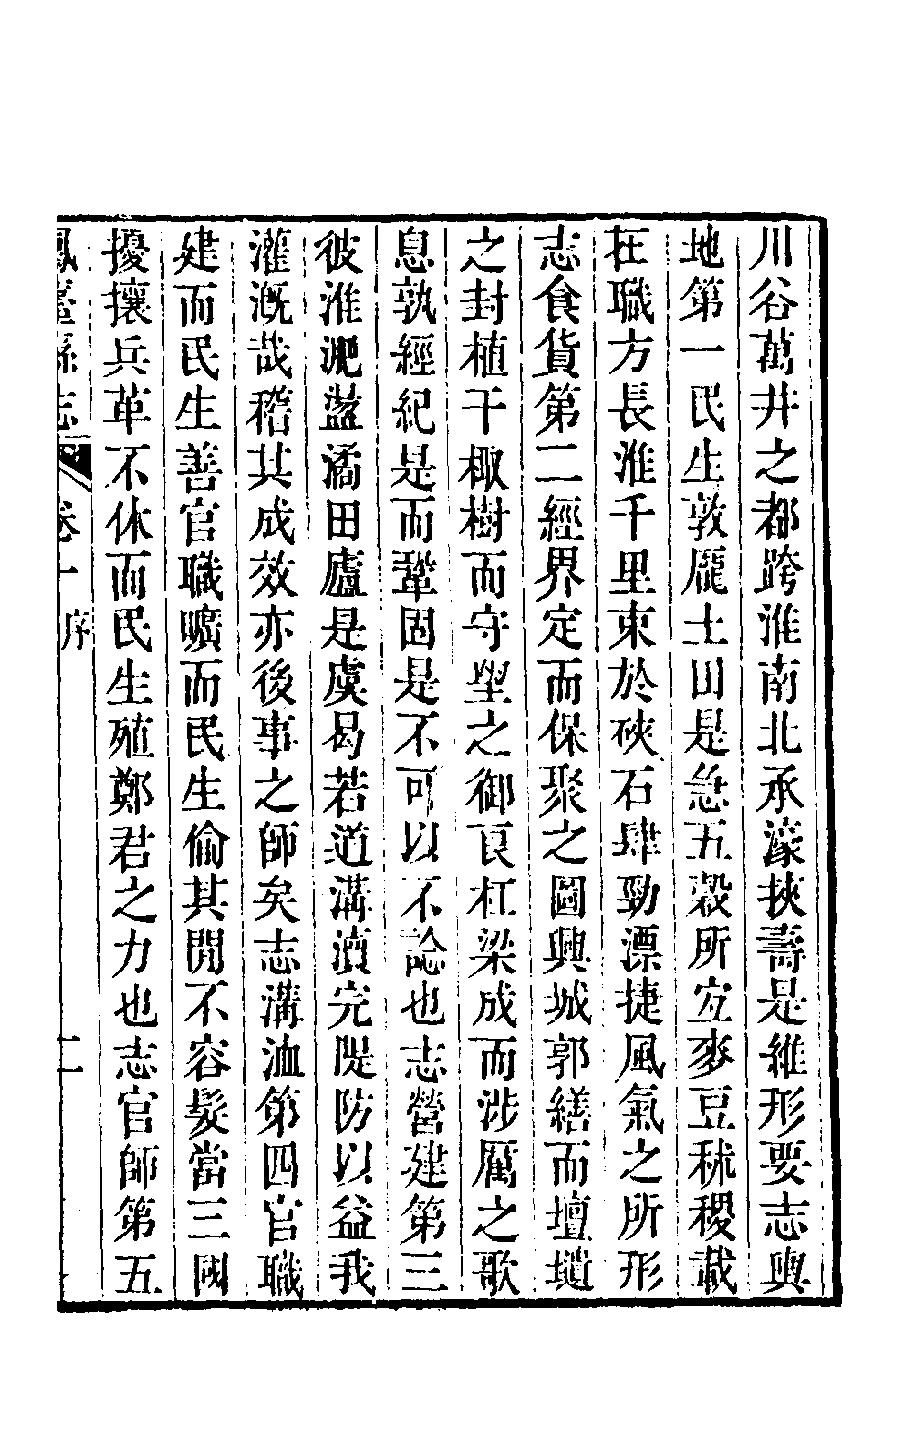 川谷萬井之都跨淮南北承濠挾壽是維形要志輿
地第一民生敦厖土田是急五穀所宜麥豆秫稷載
在職方長淮千里束於硤石肆勁漂捷風氣之所形
志食貨第二經界定而保聚之圖興城郭繕而壇壝
之封植干棷樹而守望之御良杠梁成而涉厲之歌
息孰經紀是而鞏固是不可以不諗也志營建第三
彼淮淝濫潏田廬是虞曷若道溝瀆完隄防以益我
灌溉哉稽其成效亦後事之師矣志溝洫第四官職
建而民生善官職曠而民生偷其閒不容髮當三國
擾攘兵革不休而民生殖鄭君之力也志官師第五
鳳臺縣志 卷十 序 二